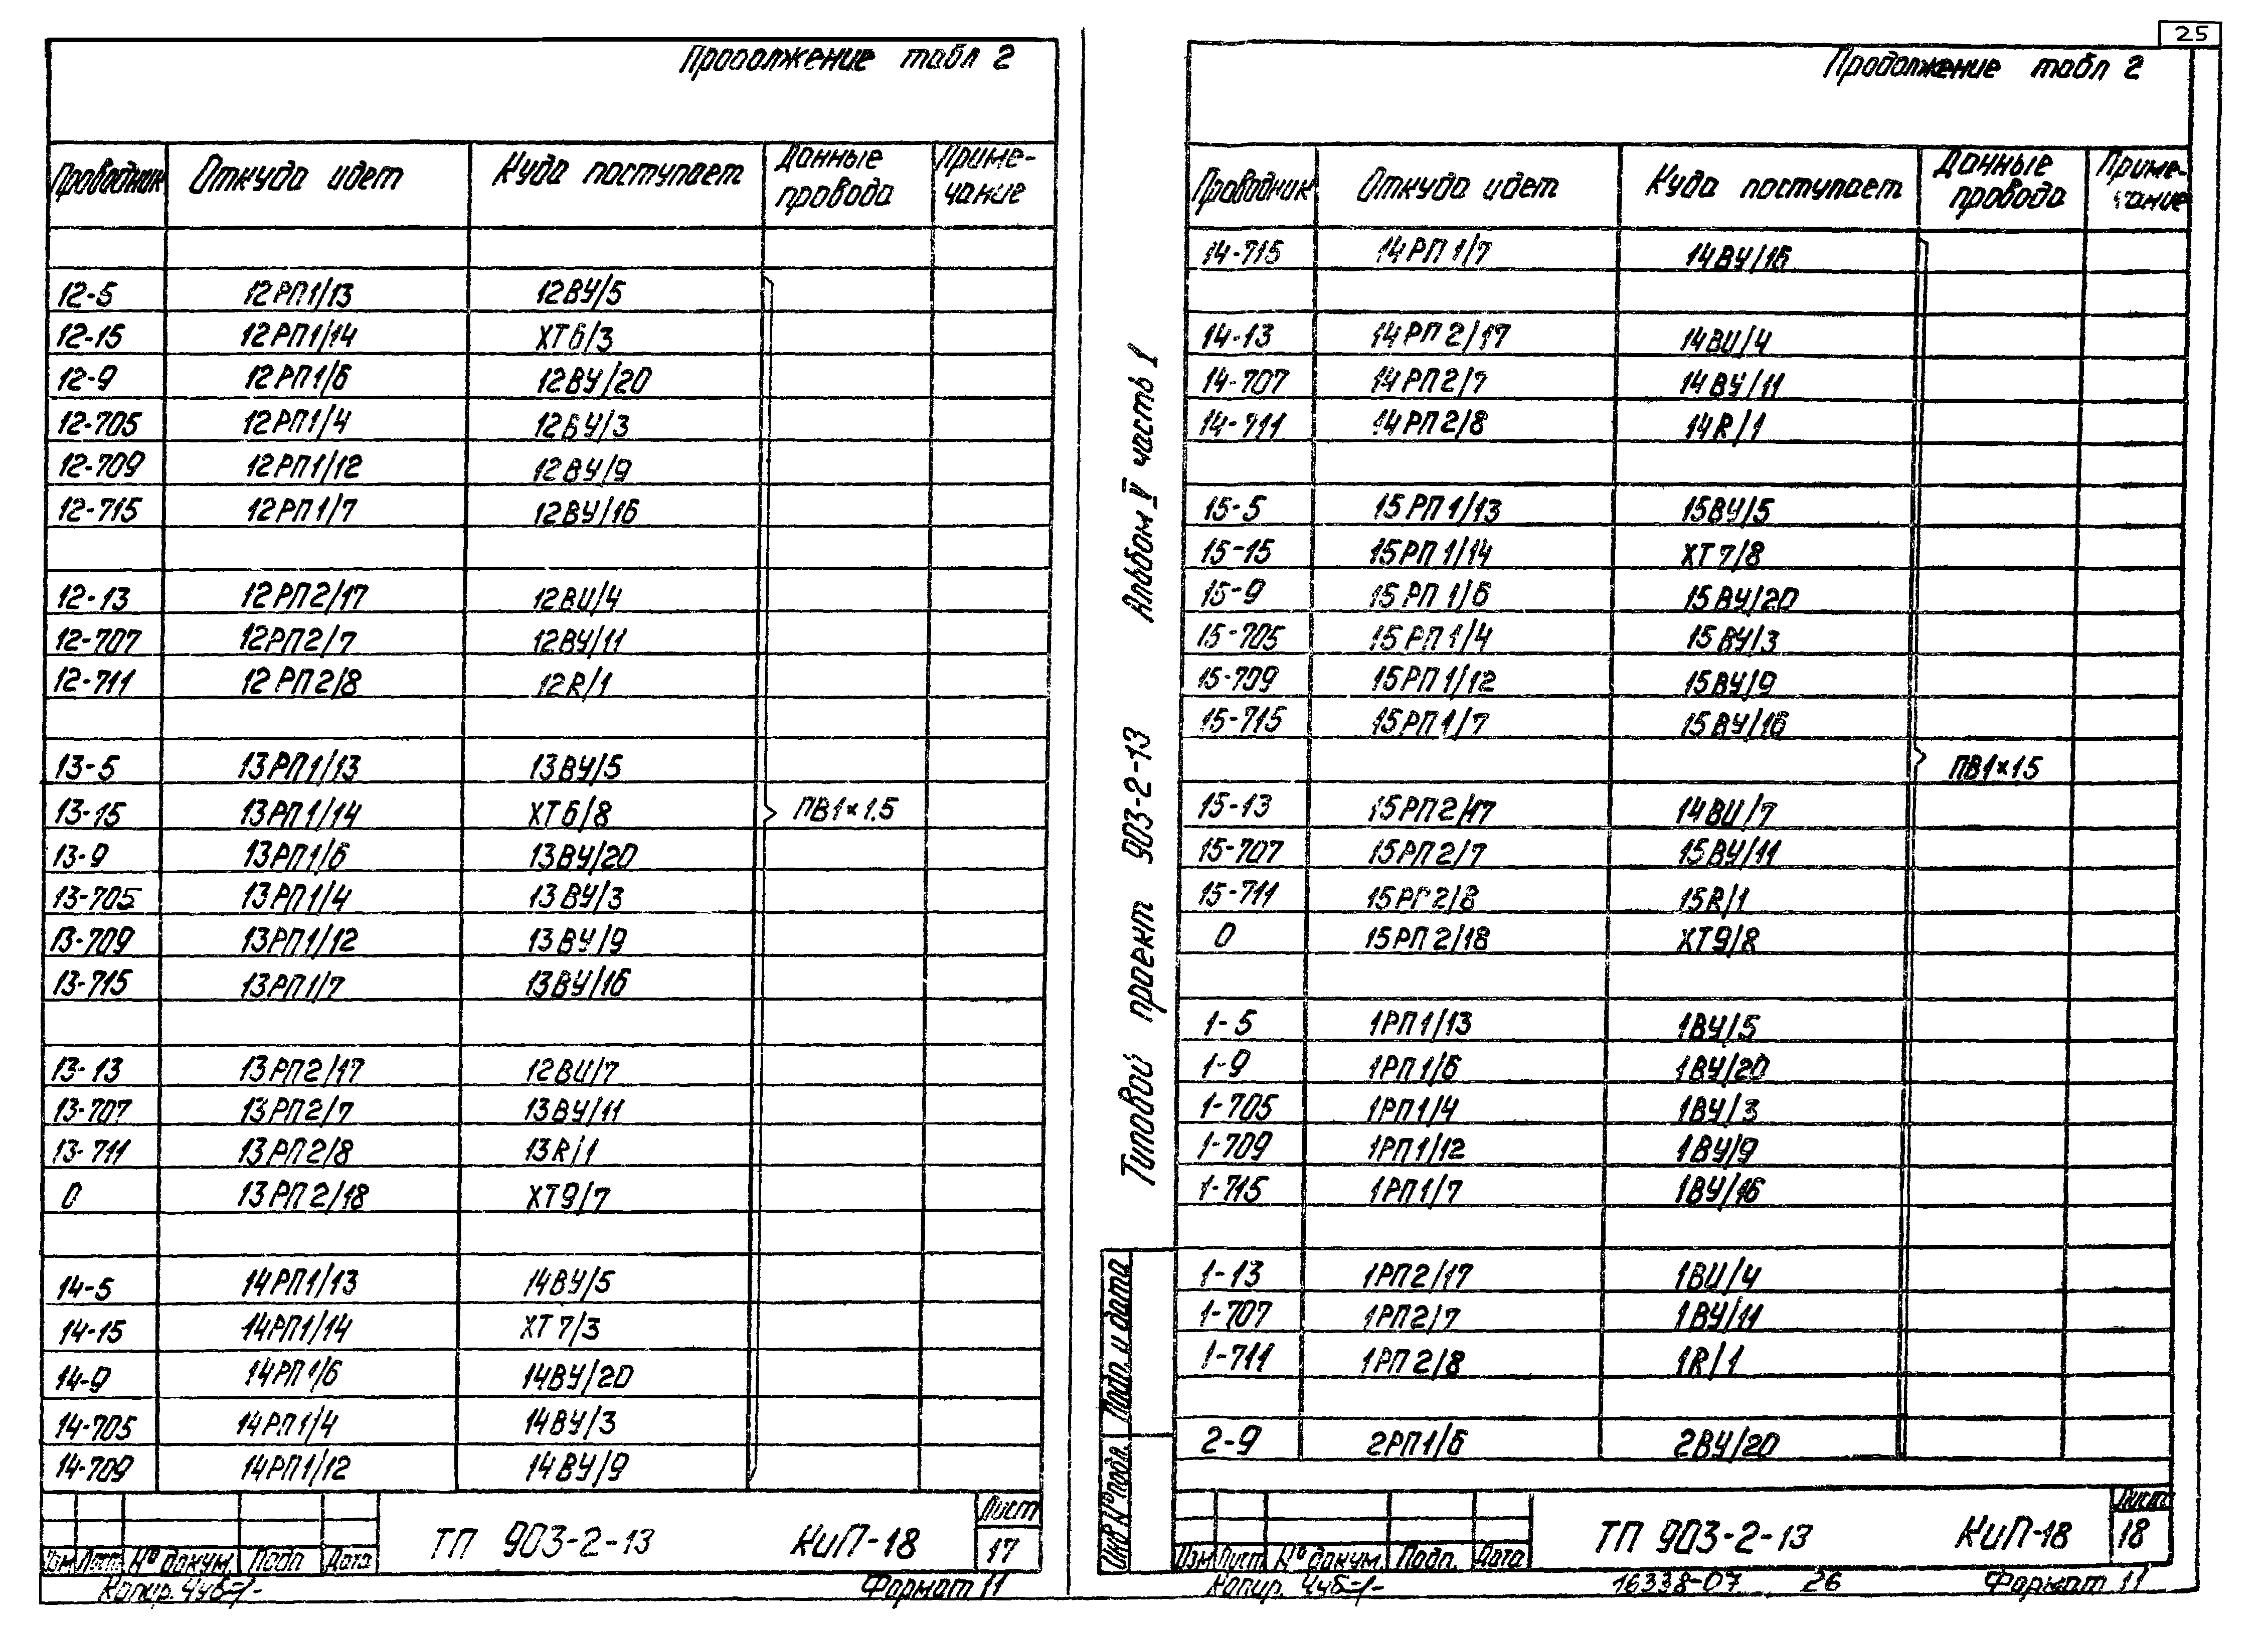 Продолжение табл 2
Проводник Откуда идет Куда поступает Данные провода Примечание
12-5 12РП1/13 12ВУ/5
12-15 12РП1/14 ХТ6/3
12-9 12РП1/6 12ВУ/20
12-705 12РП1/4 12ВУ/3
12-709 12РП1/12 12ВУ/9
12-715 12РП1/7 12ВУ/16
12-13 12РП2/17 12ВЦ/4
12-707 12РП2/7 12ВУ/11
12-711 12РП2/8 12R/1
13-5 13РП1/13 13ВУ/5
13-15 13РП1/14 ХТ6/8 ПВ1×1.5
13-9 13РП1/6 13ВУ/20
13-705 13РП1/4 13ВУ/3
13-709 13РП1/12 13ВУ/9
13-715 13РП1/7 13ВУ/16
13-13 13РП2/17 12ВЦ/7
13-707 13РП2/7 13ВУ/11
13-711 13РП2/8 13R/1
0 13РП2/18 ХТ9/7
14-5 14РП1/13 14ВУ/5
14-15 14РП1/14 ХТ7/3
14-9 14РП1/6 14ВУ/20
14-705 14РП1/4 14ВУ/3
14-709 14РП1/12 14ВУ/9
Изм Лист № докум. Подп Дата ТП 903-2-13 КиП-18 Лист 17
Копир. Формат 11
25
Продолжение табл 2
Проводник Откуда идет Куда поступает Данные провода Примечание
14-715 14РП1/7 14ВУ/16
14-13 14РП2/17 14ВЦ/4
14-707 14РП2/7 14ВУ/11
14-711 14РП2/8 14R/1
15-5 15РП1/13 15ВУ/5
15-15 15РП1/14 ХТ7/8
15-9 15РП1/6 15ВУ/20
15-705 15РП1/4 15ВУ/3
15-709 15РП1/12 15ВУ/9
15-715 15РП1/7 15ВУ/16
ПВ1×1.5
15-13 15РП2/17 14ВЦ/7
15-707 15РП2/7 15ВУ/11
15-711 15РП2/8 15R/1
0 15РП2/18 ХТ9/8
1-5 1РП1/13 1ВУ/5
1-9 1РП1/6 1ВУ/20
1-705 1РП1/4 1ВУ/3
1-709 1РП1/12 1ВУ/9
1-715 1РП1/7 1ВУ/16
1-13 1РП2/17 1ВЦ/4
1-707 1РП2/7 1ВУ/11
1-711 1РП2/8 1R/1
2-9 2РП1/6 2ВУ/20
Типовой проект 903-2-13 Альбом V часть 1
Инв № подл. Подп. и дата
Изм Лист № докум. Подп. Дата ТП 903-2-13 КиП-18 Лист 18
Копир. 16338-07 26 Формат 11